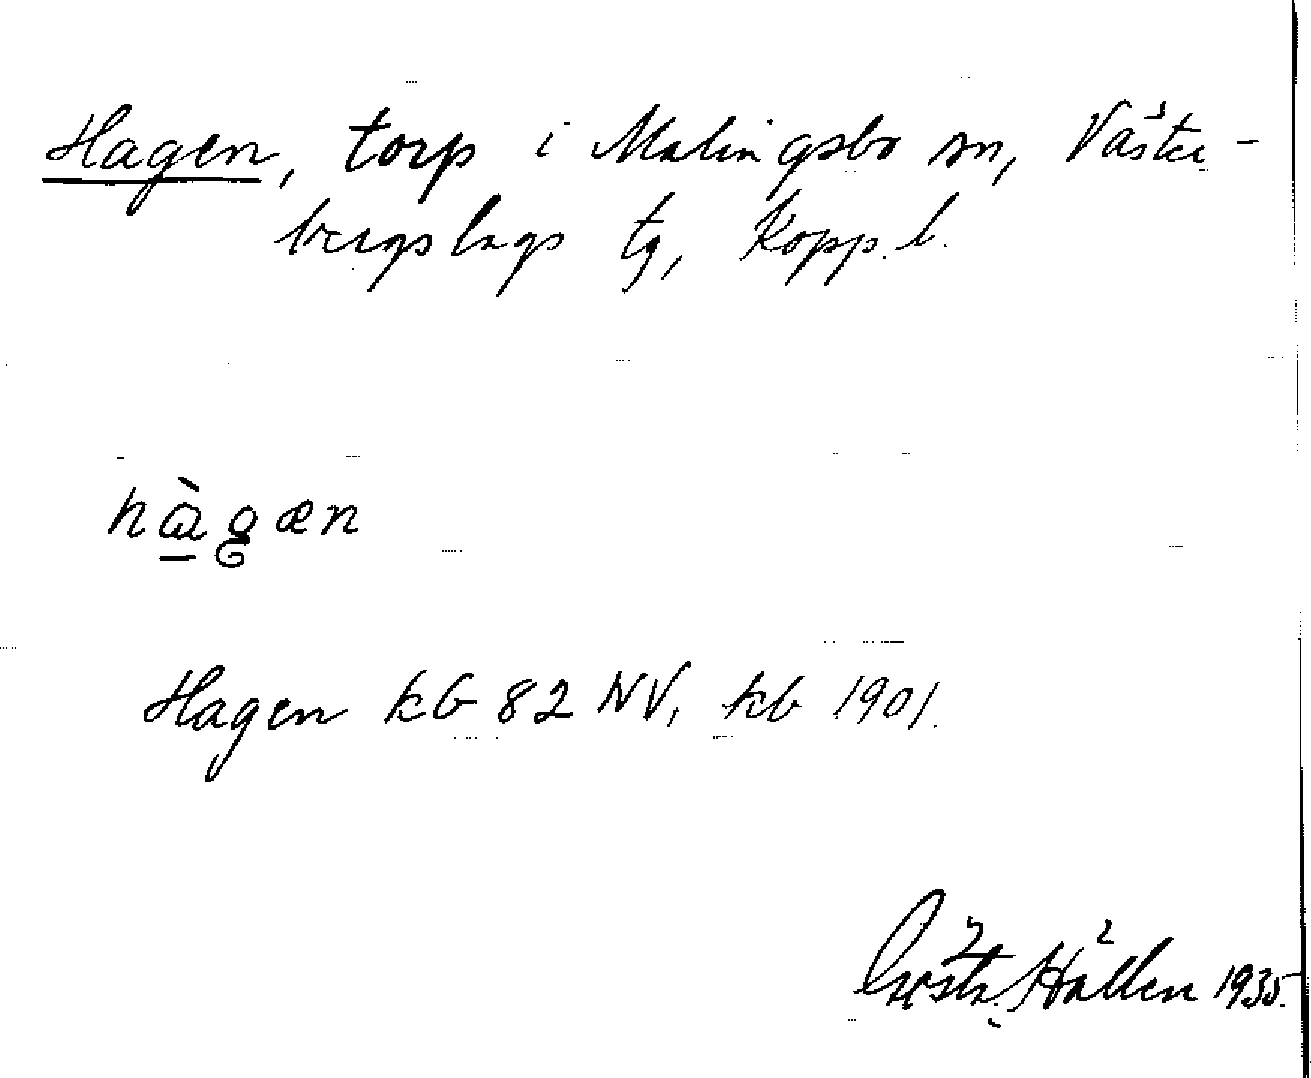 Hagen, torp i Malingsbo sn, Väster-
bergslags tg, Kopp. l.
hàgæn
Hagen kb 82 NV, kb 1901.
Gösta Hallén 1935.